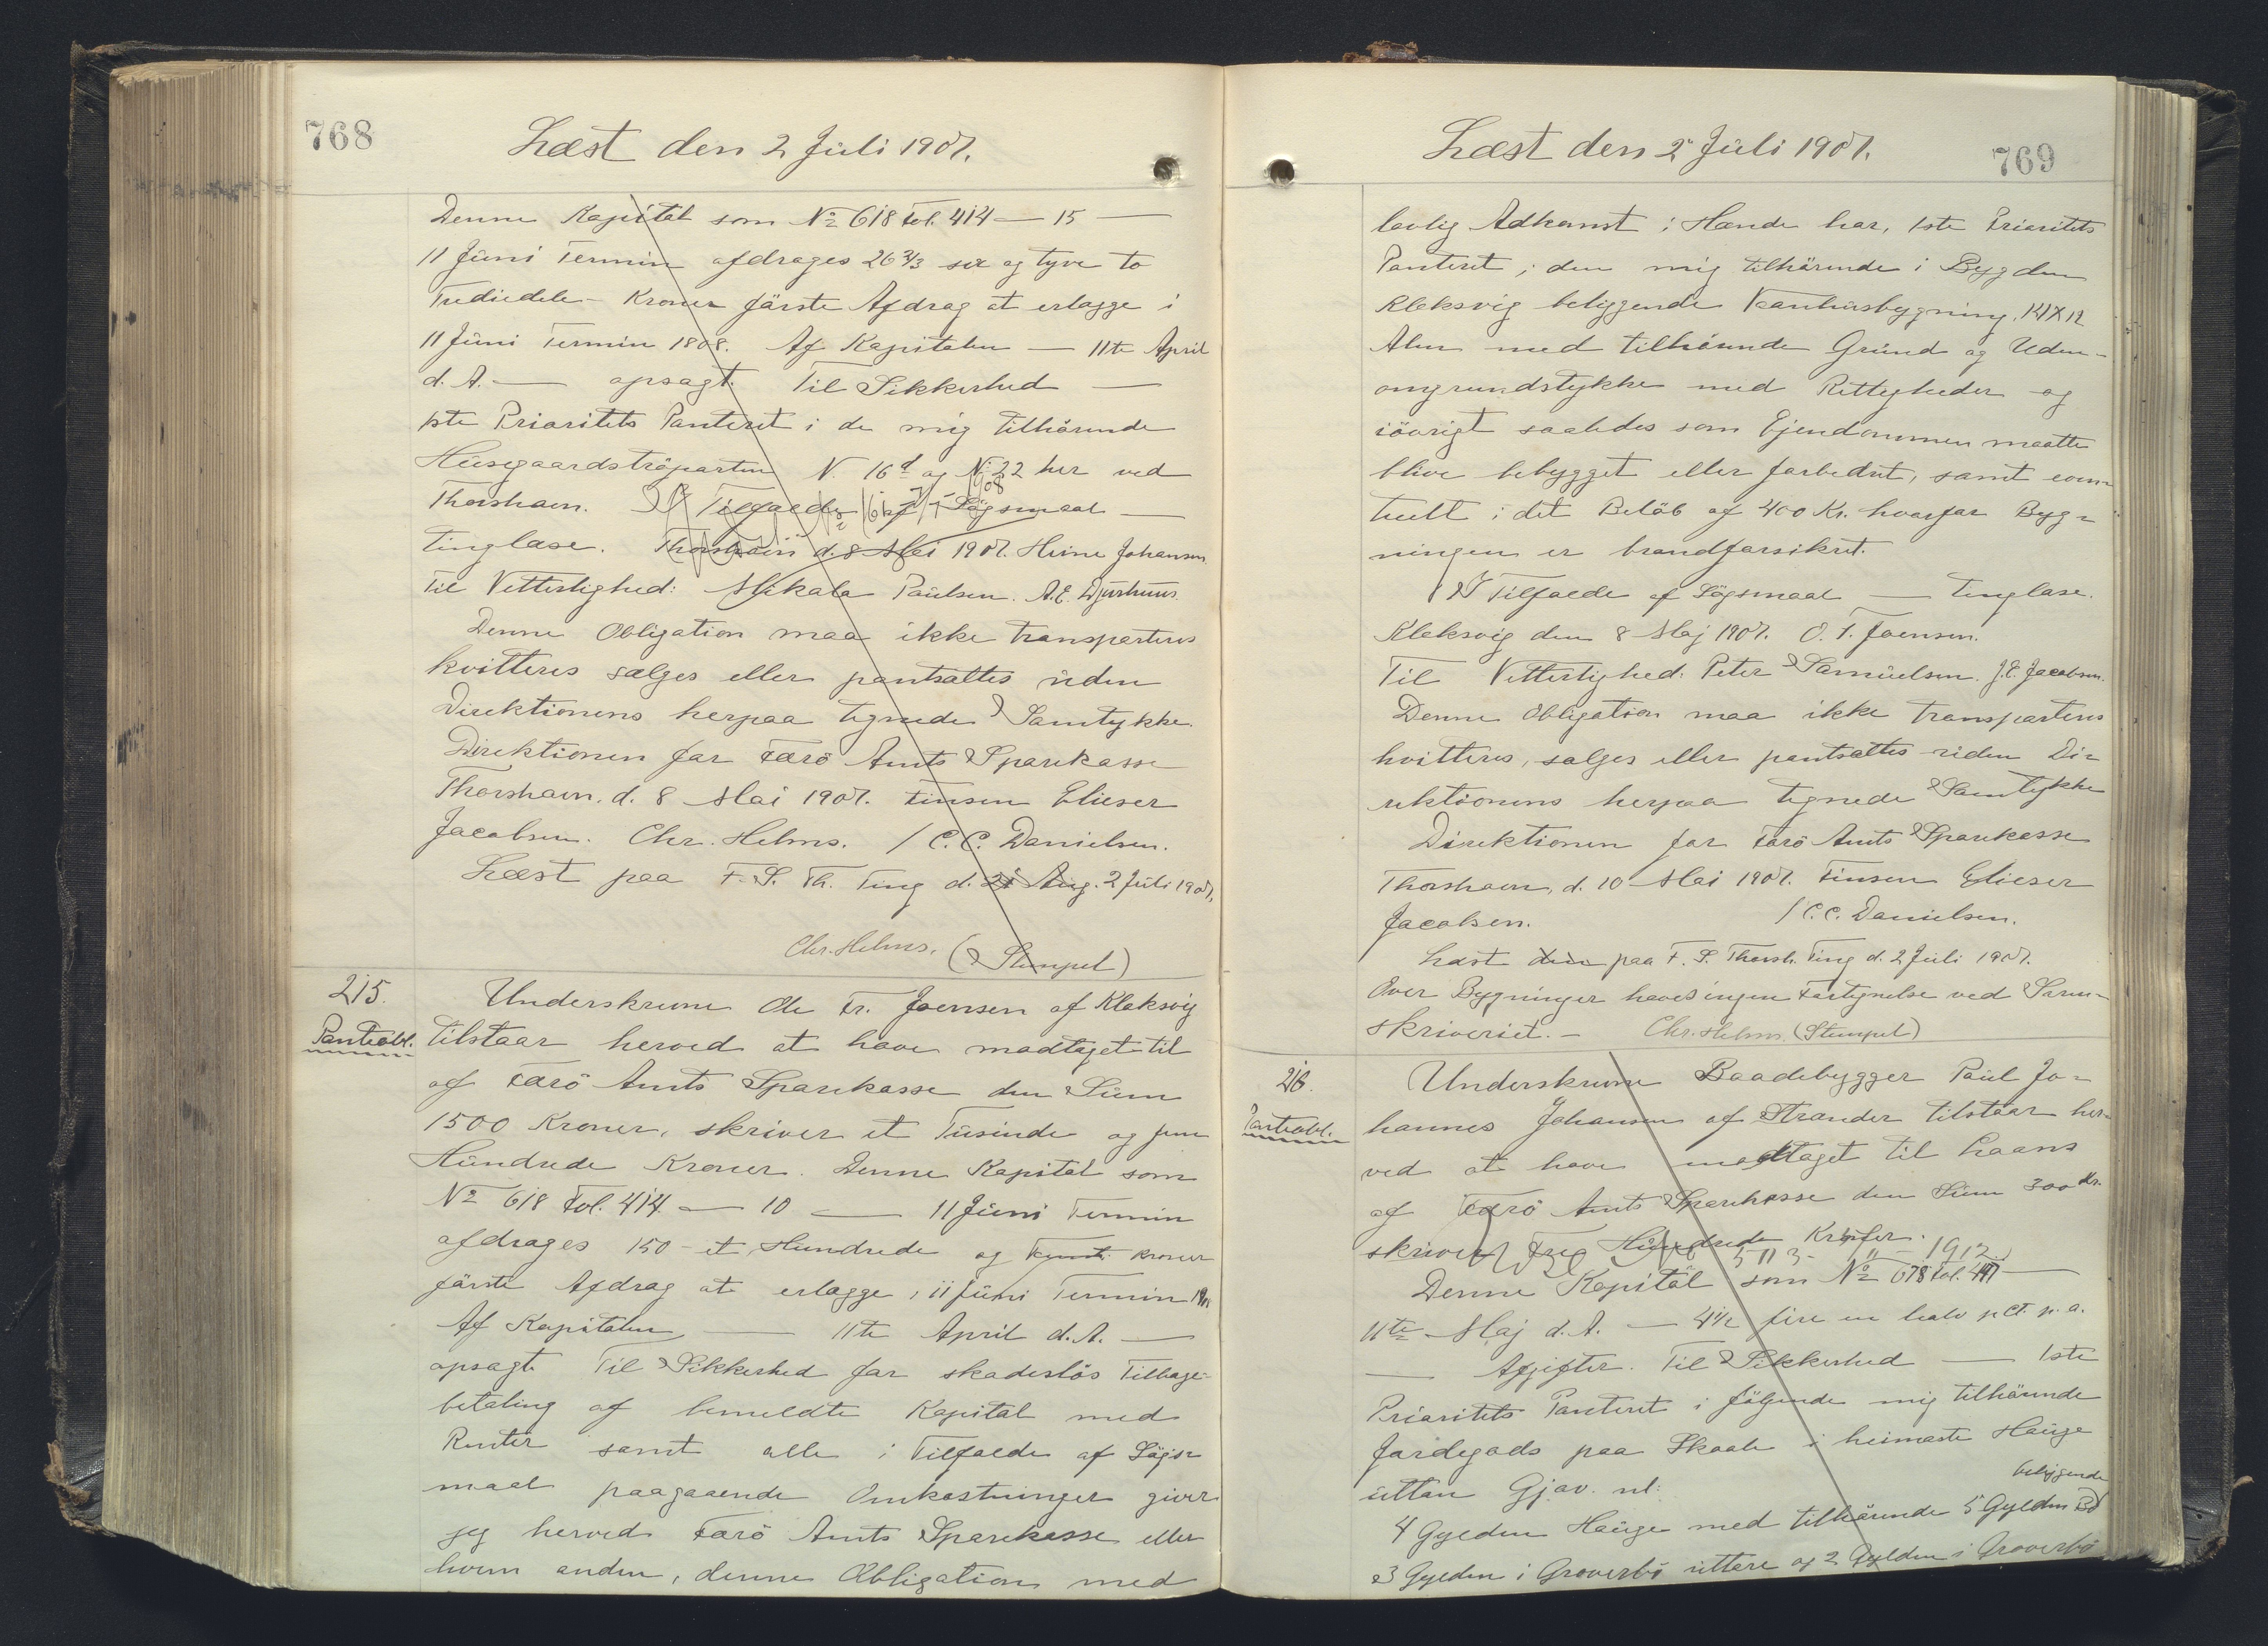 768
Læst den 2 Juli 1907.
Denne Kapital som № 618 Fol. 414 — 15 —
11 Juni Termin afdrages 26 2/3 sex og tyve to
Trediedele Kroner første Afdrag at erlægge i
11 Juni Termin 1808. Af Kapitalen — 11te April
d. A. — opsagt. Til Sikkerhed —
1ste Prioritets Panteret i de mig tilhørende
Husegaardströparten N. 16d og N: 22 her ved
Thorshavn. I Tilfælde af Søgsmaal —
tinglæse. Thorshavn d. 8 Mai 1907. Heine Johansen
Til Vetterlighed: Mikala Paulsen. A.E. Djurhuus.
Denne Obligation maa ikke transporteres
kvitteres sælges eller pantsættes uden
Direktionens herpaa tegnede Samtykke
Direktionen for Færö Amts Sparekasse
Thorshavn, d. 8 Mai 1907. Finsen Elieser
Jacobsen. Chr. Helms. / C.C. Danielsen.
Læst paa F. S. Th. Ting d. 21 Aug. 2 Juli 1907.
Chr. Helms. (Stempel)
215.
Panteobl.
Underskrevne Ole Fr. Joensen af Klaksvig
tilstaar herved at have modtaget til
af Færö Amts Sparekasse den Sum
1500 Kroner, skriver et Tusinde og fem
Hundrede Kroner. Denne Kapital som
№ 618 Fol. 414 — 10 — 11 Juni Termin
afdrages 150 - et Hundrede og femti Kroner
første Afdrag at erlægge i 11 Juni Termin
Af Kapitalen — 11te April d. A. —
opsagt. Til Sikkerhed for skadeslös Tilbage-
betaling af bemeldte Kapital med
Renter samt alle i Tilfælde af Søgs-
maal paagaaende Omkostninger giver
jeg herved Færö Amts Sparekasse eller
hvem anden, denne Obligation med
Læst den 2 Juli 1907.
769
lovlig Adkomst i Hænde har, 1ste Prioritets
Panteret i den mig tilhørende i Bygden
Klaksvig beliggende Vaanhusbygning, 14 X 12
Alen med tilhørende Grund og Uden-
omgrundstykke med Rettigheder og
iøvrigt saaledes som Ejendommen maatte
blive bebygget eller forbedret, samt even-
tuelt i det Beløb af 400 Kr. hvorfor Byg-
ningen er brandforsikret.
I Tilfælde af Søgsmaal — tinglæse.
Klaksvig den 8 Maj 1907. O. F. Joensen.
Til Vetterlighed: Peter Samuelsen. J.E. Jacobsen.
Denne Obligation maa ikke transporteres
kvitteres, sælges eller pantsættes uden Di-
rektionens herpaa tegnede Samtykke
Direktionen for Færö Amts Sparekasse
Thorshavn, d. 10 Mai 1907. Finsen Elieser
Jacobsen. / C.C. Danielsen.
Læst paa F. S. Thorsh. Ting d. 2 Juli 1907.
Over Bygninger haves ingen Fortegnelse ved Soren-
skriveriet. — Chr. Helms. (Stempel)
216.
Panteobl.
Underskrevne Baadebygger Paul Jo-
hannes Johansen af Strander tilstaar her-
ved at have modtaget til Laans
af Færö Amts Sparekasse den Sum 300 Kr.
skriver Tre Hundrede Kroner.
1912
Denne Kapital som № 678 Fol. —
11te Maj d. A. — 4 1/2 fire en halv pCt. p. a.
— Afgifter. Til Sikkerhed — 1ste
Prioritets Panteret i følgende mig tilhørende
Jordegods paa Skaale i heimaste Hauge
uttan Gjøv. nl:
beliggende
4 Gylden Hauge med tilhørende 5 Gylden Bö
3 Gylden i Groverbö uttare og 2 Gylden i Groverbö